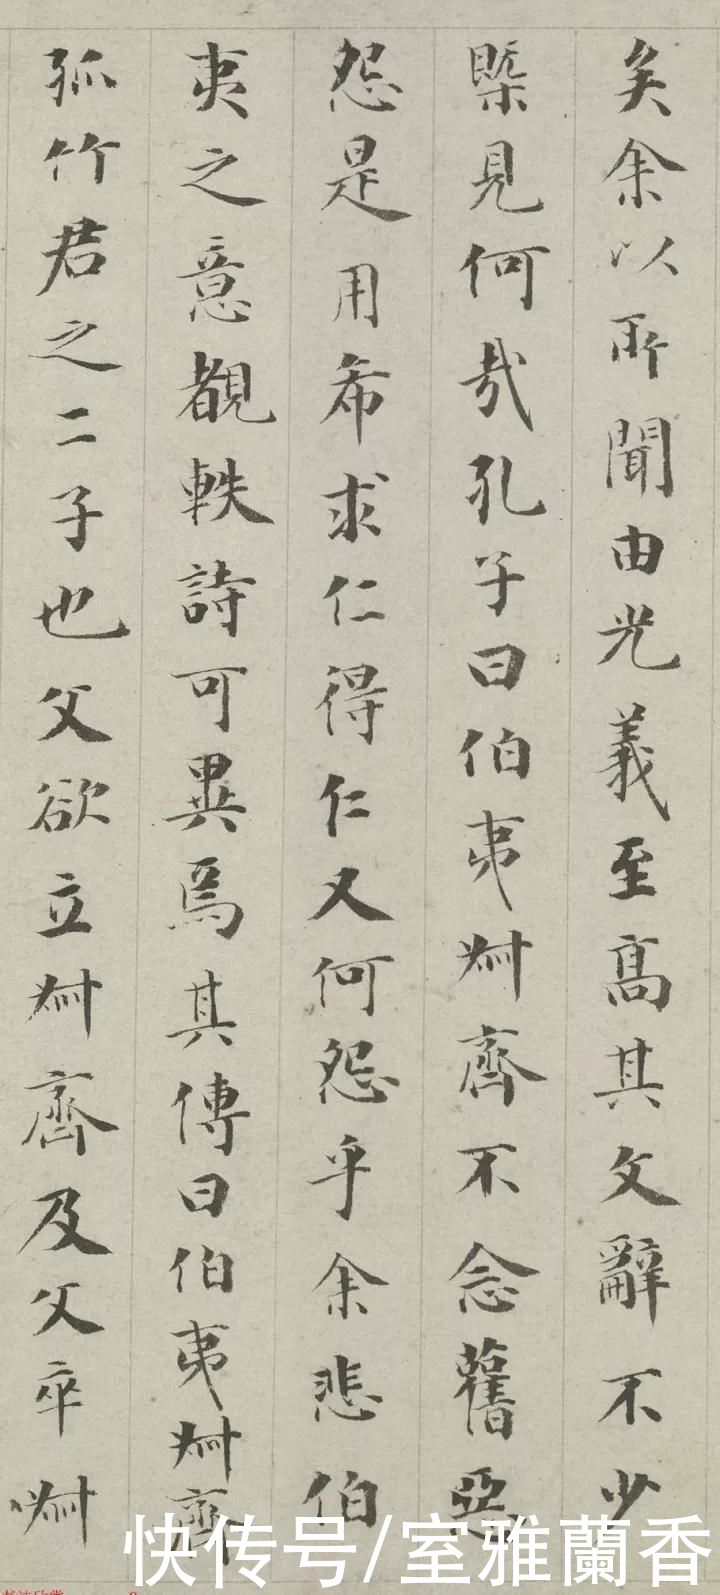 矣余以所聞由光義至高其文辭不少
槩見何哉孔子曰伯夷叔齊不念舊惡
怨是用希求仁得仁又何怨乎余悲伯
夷之意覩軼詩可異焉其傳曰伯夷叔齊
孤竹君之二子也父欲立叔齊及父卒叔
快传号/室雅蘭香